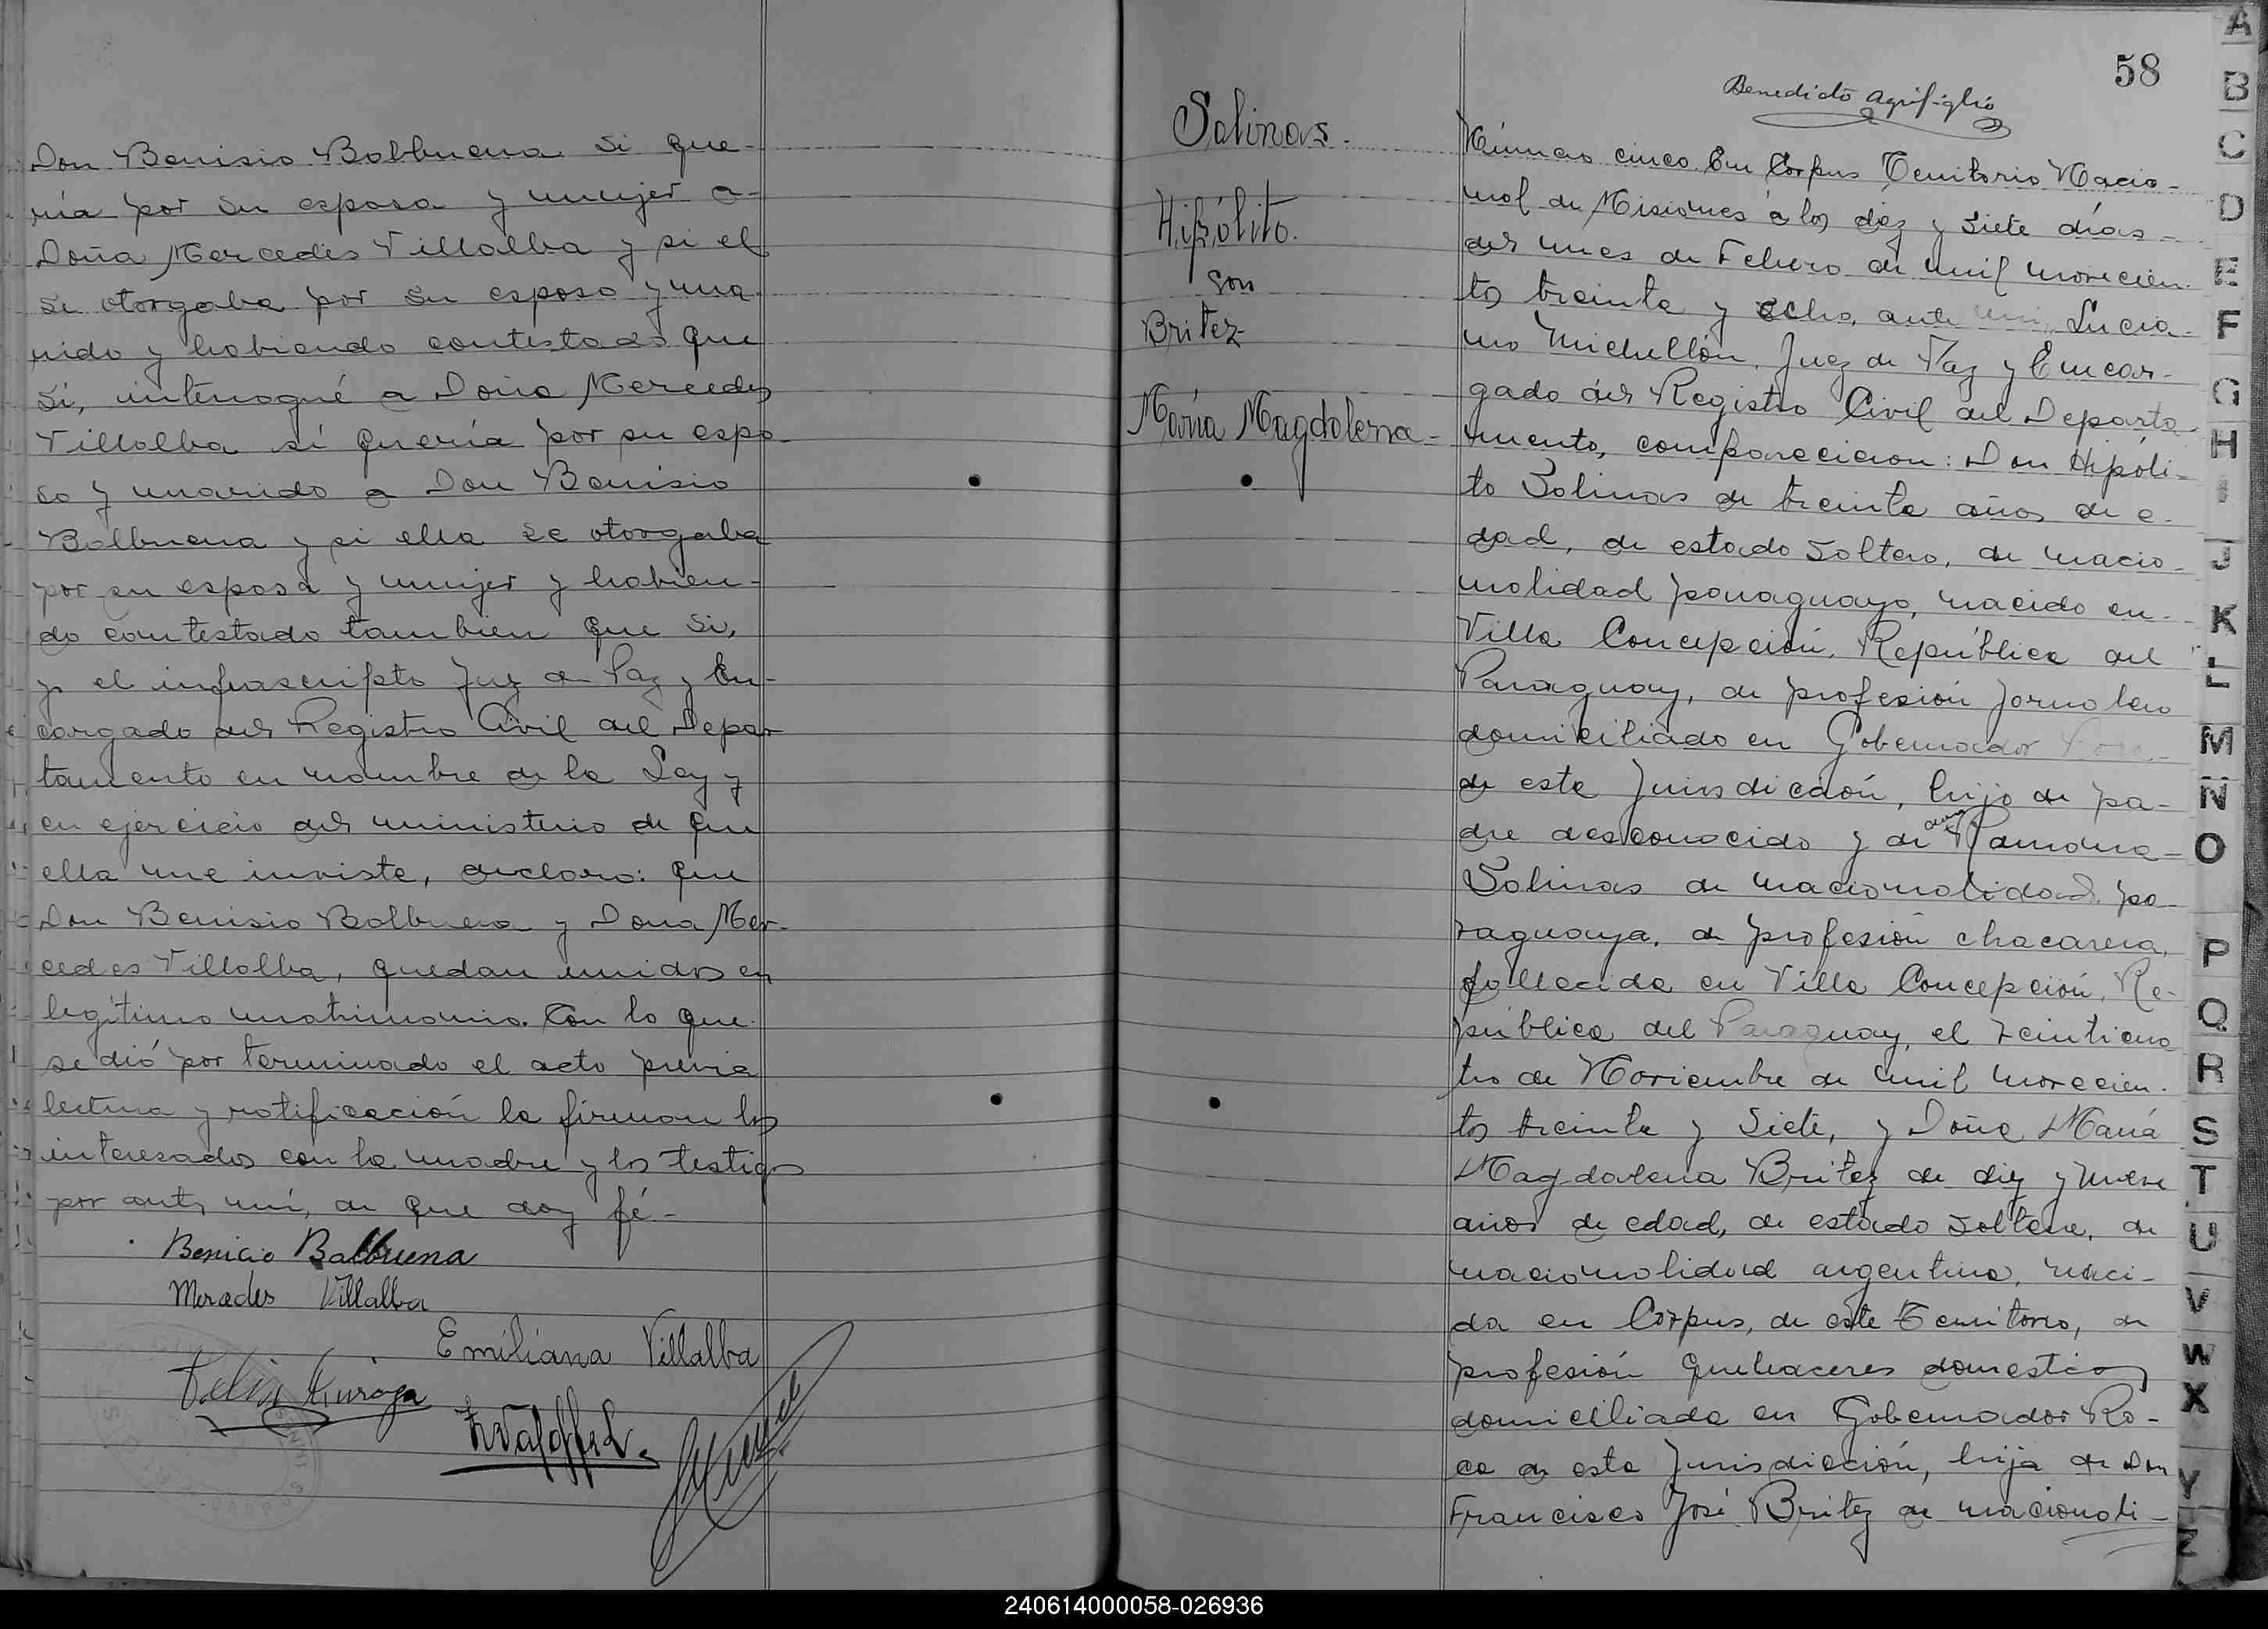 Don Benisio Balbuena si que-
ría por su esposa y mujer a-
Doña Mercedes Villalba y si el
se otorgaba por su esposo y ma-
rido y habiendo contestado que
si, interrogué a Doña Mercedes
Villalba si quería por su espo-
so y marido a Don Benisio
Balbuena y si ella se otorgaba
por su esposa y mujer y habien-
do contestado tambien que si,
yo el infrascripto Juez de Paz y En-
cargado del Registro Civil del Depar-
tamento en nombre de la Ley y
en ejercicio del ministerio de que
ella me inviste, declaro: que
Don Benisio Balbuena y Dona Mer-
cedes Villalba, quedan unidos en
legítimo matrimonio. Con lo que
se dió por terminado el acto previa
lectura y ratificación la firman los
interesados con la madre y los testigos
por ante mi, de que doy fé-
Benicio Balbuena
Mercedes Villalba
Emiliana Villalba
58
Benedicto Agrifoglio
Salinas.
Hipólito.
con
Britez
María Magdalena-
Número cinco. En Corpus Territorio Nacio-
nal de Misiones a los diez y siete días
del mes de Febrero de mil novecien-
tos treinta y ocho, ante mi, Lucia-
no Michellón, Juez de Paz y Encar-
gado del Registro Civil del Departa-
mento, comparecieron: Don Hipóli-
to Salinas de treinta años de e-
dad, de estado soltero, de nacio-
nalidad paraguayo, nacido en-
Villa Concepción, República del
Paraguay, de profesión jornalero
domiciliado en Gobernador Roca.-
de esta Jurisdicción, hijo de pa-
dre desconocido y de Ramona-
Salinas de nacionalidad pa-
raguaya, de profesión chacarera,
fallecida en Villa Concepción, Re-
pública del Paraguay, el veinticua
tro de Noviembre de mil novecien-
tos treinta y siete, y Doña María
Magdalena Britez de diez y nueve
años de edad, de estado soltera, de
nacionalidad argentina, naci-
da en Corpus, de este Territorio, de
profesión quehaceres domesticos
domiciliada en Gobernador Ro-
ca de esta Jurisdicción, hija de Don
Francisco José Britez de nacionali-
A
B
C
D
E
F
G
H
I
J
K
L
M
N
O
P
Q
R
S
T
U
V
W
X
Y
Z
240614000058-026936